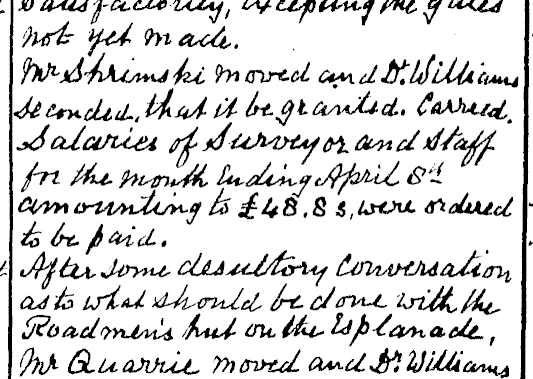 satisfactorily, excepting the gates
not yet made.
Mr Shrimski moved and Dr. Williams
seconded, that it be granted. Carried.
Salaries of Surveyor and Staff
for the month Ending April 8th
amounting to £48.8s, were ordered
to be paid.
After some desultory Conversation
as to what should be done with the
Roadmen's hut on the Esplanade,
Mr Quarrie moved and Dr. Williams